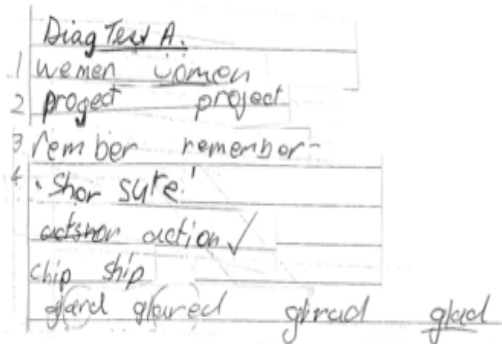 Diag Test A.
1 wemen women
2 progect project
3 rember remember
4 shor sure
actshor action ✓
chip ship
glard glaured glirad glad